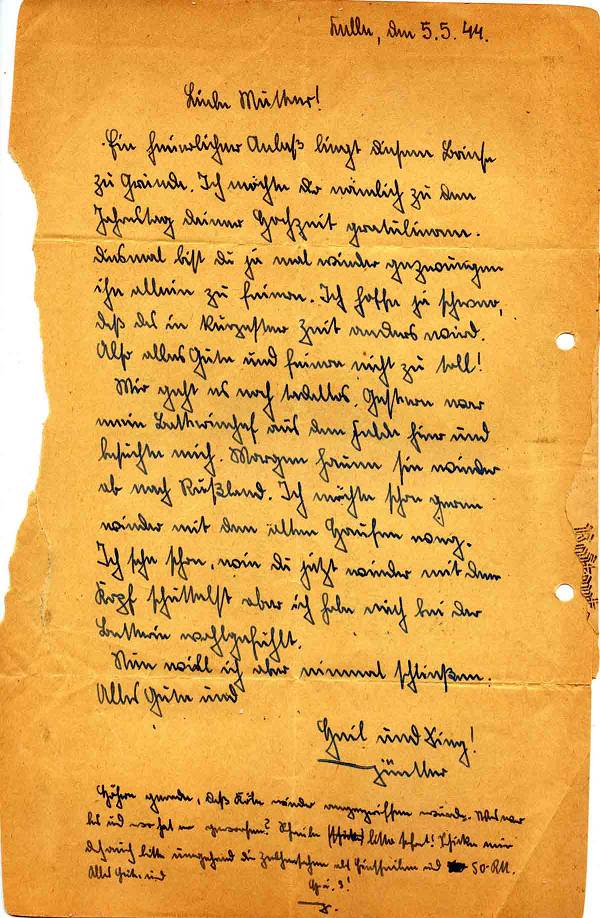 Fulda, den 5.5.44.
Liebe Mutter!
Ein feierlicher Anlaß liegt diesem Briefe
zu Grunde. Ich möchte dir nämlich zu dem
Jahrestag deiner Hochzeit gratulieren.
Diesmal bist du ja mal wieder gezwungen
ihn allein zu feiern. Ich hoffe ja schwer,
daß das in kürzester Zeit anders wird.
Also alles Gute und feiere nicht zu toll!
Mir geht es noch tadellos. Gestern war
mein Batteriechef aus dem Felde hier und
besuchte mich. Morgen hauen sie wieder
ab nach Rußland. Ich möchte schon gerne
wieder mit dem alten Haufen weg.
Ich sehe schon, wie du jetzt wieder mit dem
Kopf schüttelst aber ich habe mich bei der
Batterie wohlgefühlt.
Nun will ich aber einmal schließen.
Alles Gute und
Heil und Sieg!
Günther
Höhre gerade, daß Köln wieder angegriffen wurde. Was war
los und wo hat er geworfen? Schreibe bitte sofort! Schicke mir
doch auch bitte umgehend die als und 50.-RM.
Alles Gute und
H. u. S!
G.